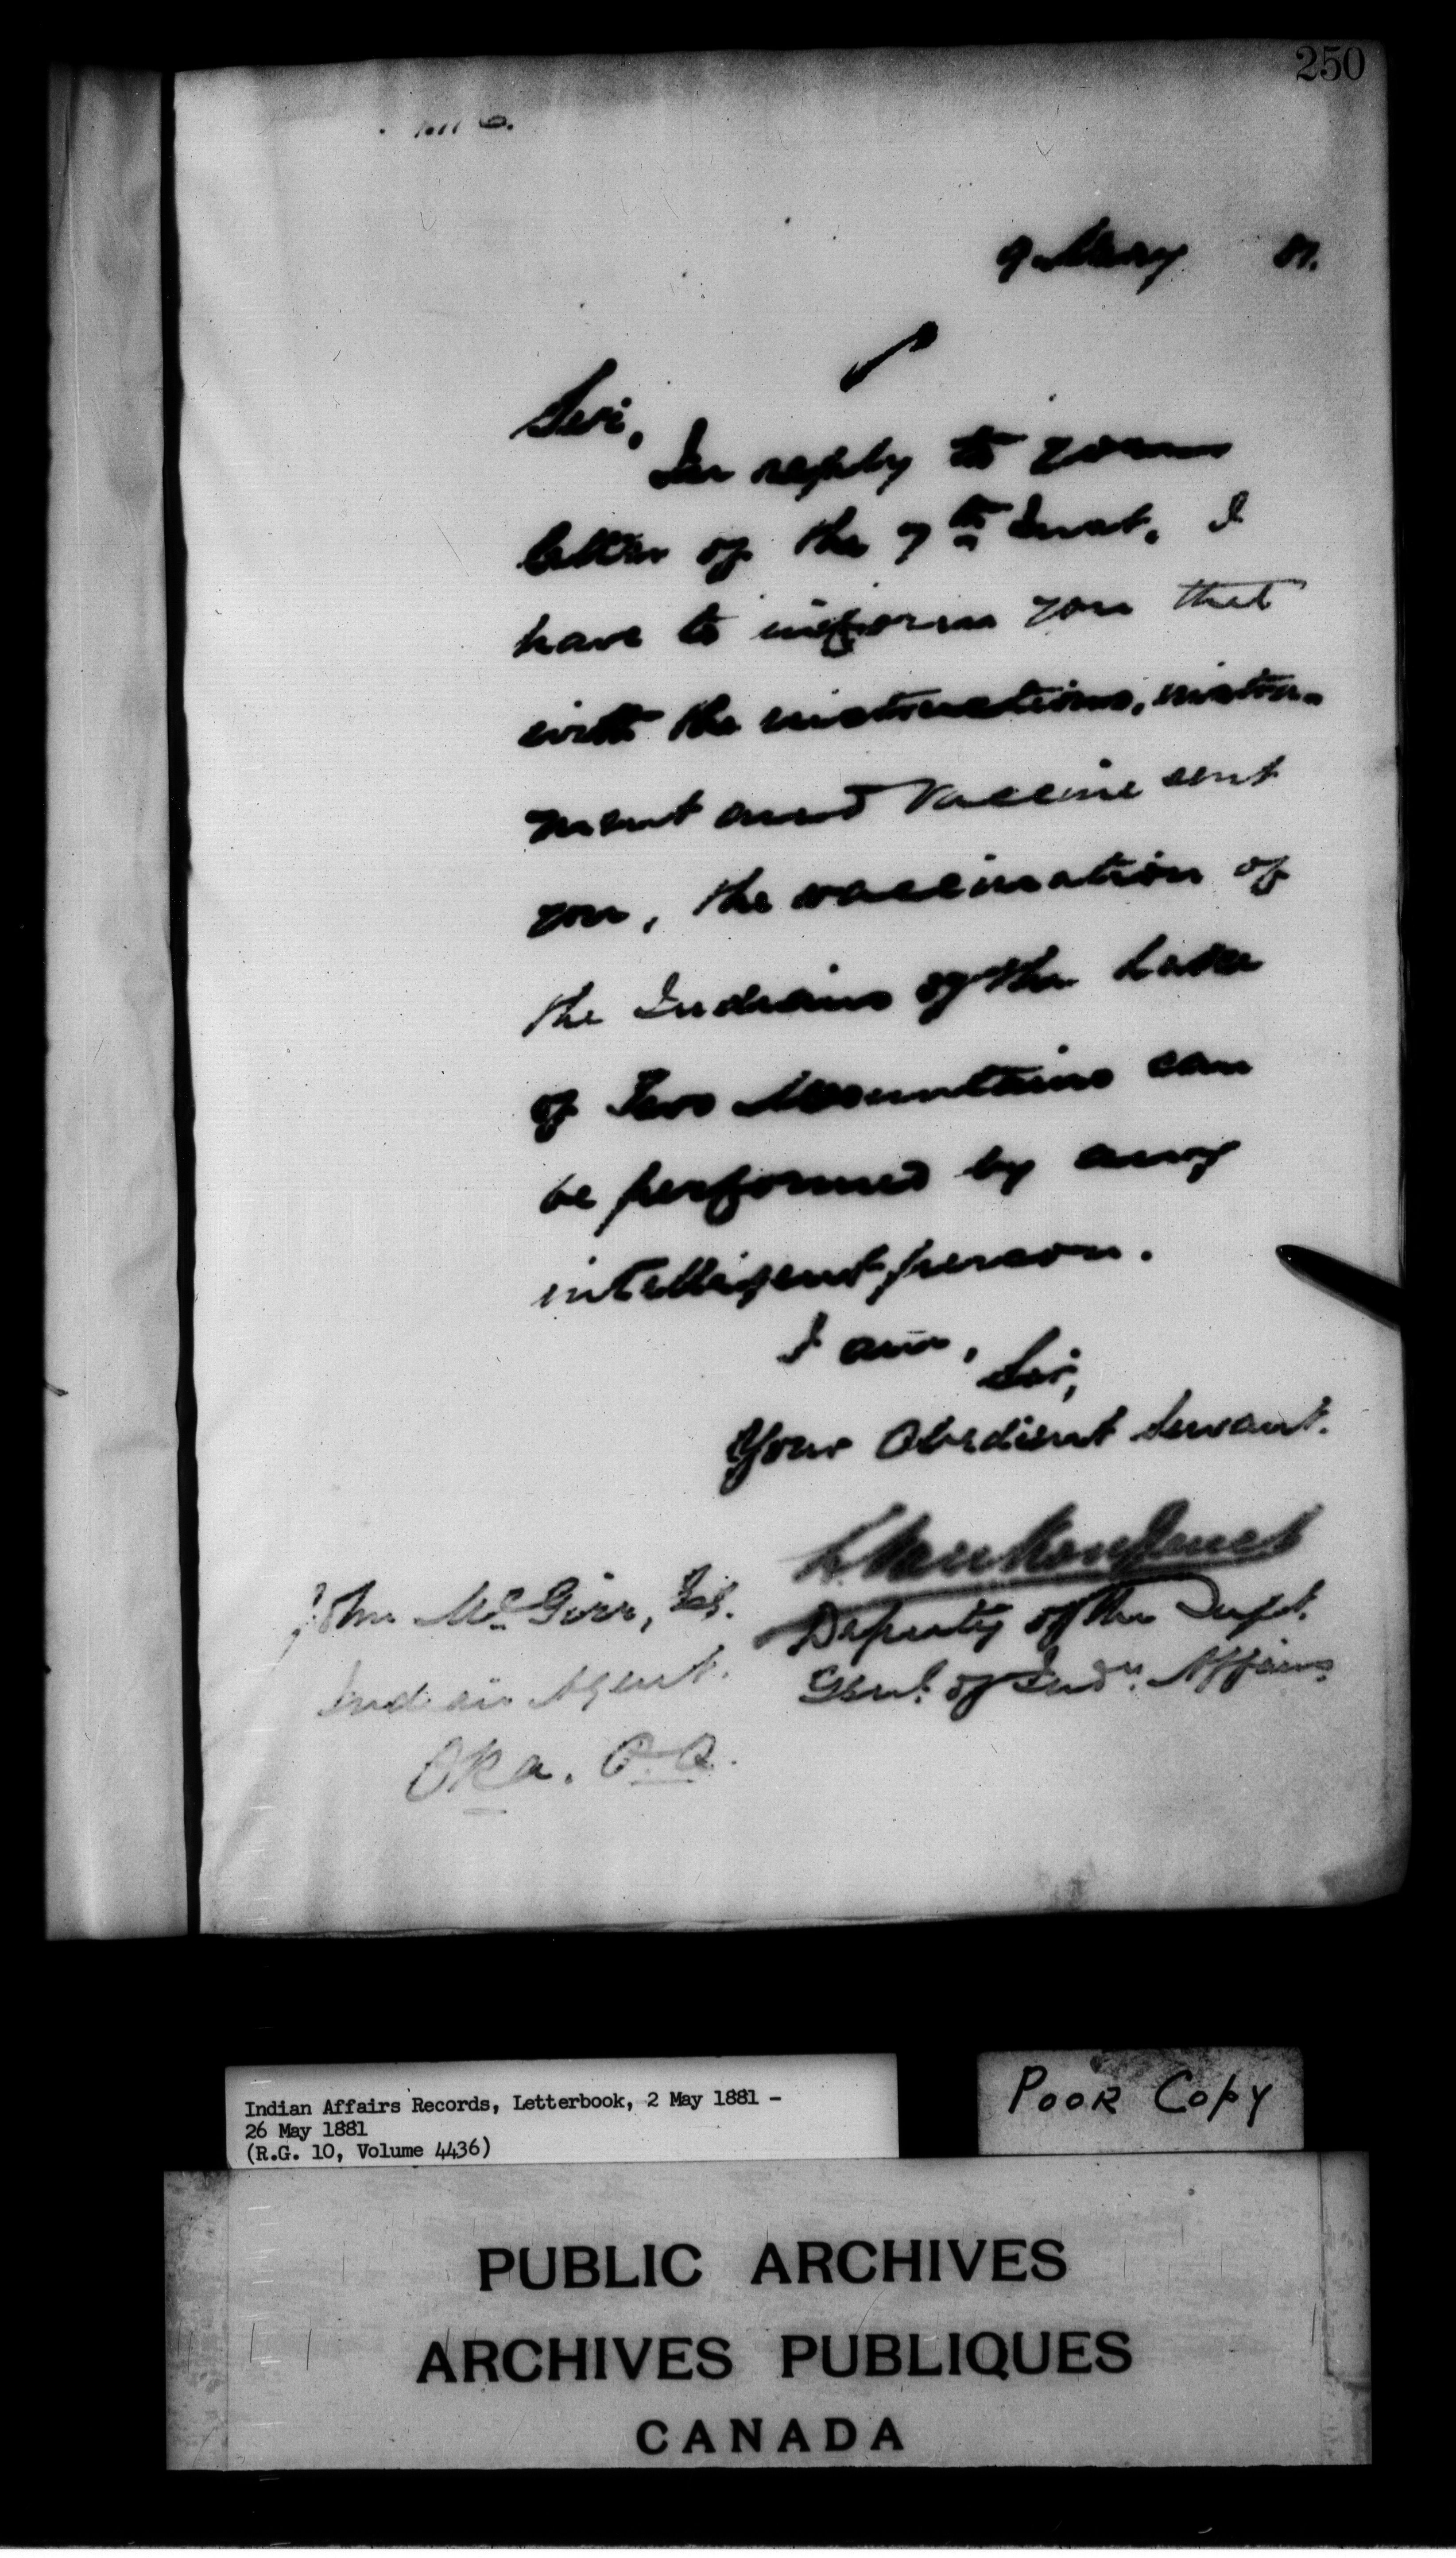 250
9 May 81.
Sir,
In reply to your
letter of the 7th Inst. I
have to inform you that
with the instructions, instru-
ment and Vaccine sent
you, the vaccination of
the Indians of the Lake
of Two Mountains can
be performed by any
intelligent person.
I am,
Sir,
Your Obedient Servant.
L. VanKoughnet
Deputy of the Supt.
Genl. of Indn. Affairs
John McGirr, Esq.
Indian Agent.
Oka. P.Q.
Indian Affairs Records, Letterbook, 2 May 1881 -
26 May 1881
(R.G. 10, Volume 4436)
POOR COPY
PUBLIC ARCHIVES
ARCHIVES PUBLIQUES
CANADA